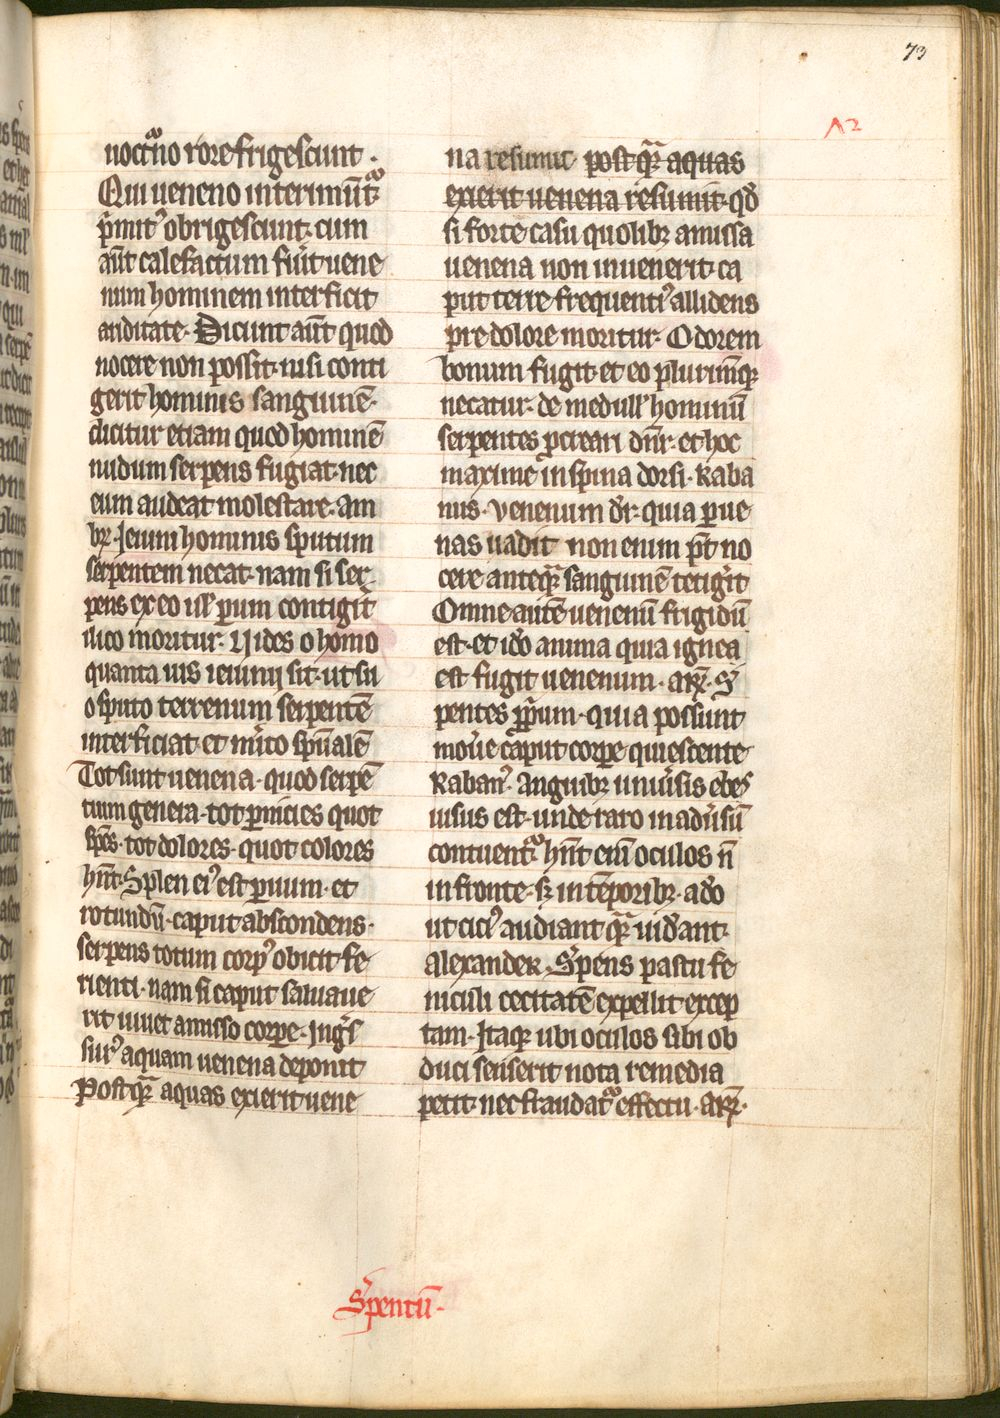 73
Λ2
noctᵃno rore frigescunt ·
Qui ueneno interimūtᵃ
p̄mitꝰ obrigescunt· cum
aūt calefactum fuīt uene
num hominem interficit
auiditate· Dicunt aūt quod
nocere non possit· nisi conti
gerit hominis sanguinē·
dicitur etiam quod hominē
nudum serpens fugiat· nec
eum audeat molestare· am
bꝝ· Ieiuni hominis sputum
serpentem necat· nam si ser
pens ex eo ill̄ ꝑum contigit̄
ilico moritur· Uides o homo
quanta uis ieiunij sit· ut su
o sputo terrenum serpentē
interficiat· et mīto sp̄ualē
Tot sunt uenena· quod serpē
tium genera· tot ꝑnicies quot
sp̄es· tot dolores· quot colores
hn̄t· Splen eiꝰ est ꝑuum· et
rotundū· caput abscondens·
serpens totum corpꝰ obicit fe
rienti· nam si caput saluaue
rit uiuet amisso corpe· Ingᵉs
surꝰ aquam uenena deponit
Postqᵃꝫ aquas exierit uene
na resumit· postqᵃꝫ aquas
exierit uenena resumit· qd̄
si forte casu quolibꝫ amissa
uenena non inuenerit· ca
put terre frequentiꝰ allidens
pre dolore moritur· Odorem
bonum fugit· et eo plurimūqꝫ
necatur· de medull̄ hominū
serpentes ꝓcreari dn̄r· et hoc
maxime in spina dorsi· Raba
nus· Venenum d̄r· quia ꝑ ue
nas uadit non enim pōt no
cere anteqᵃꝫ sanguinē tetigīt
Omne autē uenenū frigidū
est· et id̄o anima quia ignea
est fugit uenenum· aꝝ· S̄
pentes pp̄rium· quia possunt
mouē caput corpe quiescente
Rabanꝰ· Anguibꝫ uniūsis ebeˢ
uisus est· unde raro in aduīsū
contuentᵃ hn̄t enī oculos n̄
in fronte· sꝫ in tēporibꝫ· ad̄o
ut ciciꝰ audiant qᵃꝫ uid̄ant·
Alexander· S̄pens pastu fe
niculi cecitatē expellit excep
tam· Itaqꝫ ubi oculos sibi ob
duci senserit nota remedia
petit· nec fraudatᵃ effectu· aꝝ·
S̄pentū·